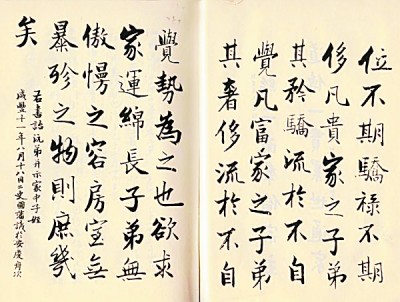 位不期驕祿不期
侈凡貴家之子弟
其矜驕流於不自
覺凡富家之子弟
其奢侈流於不自
覺勢為之也欲求
家運綿長子弟無
傲慢之容房室無
暴殄之物則庶幾
矣
右書詒沅弟并示家中子姪
咸豐十一年八月十八日二更國藩識於安慶舟次